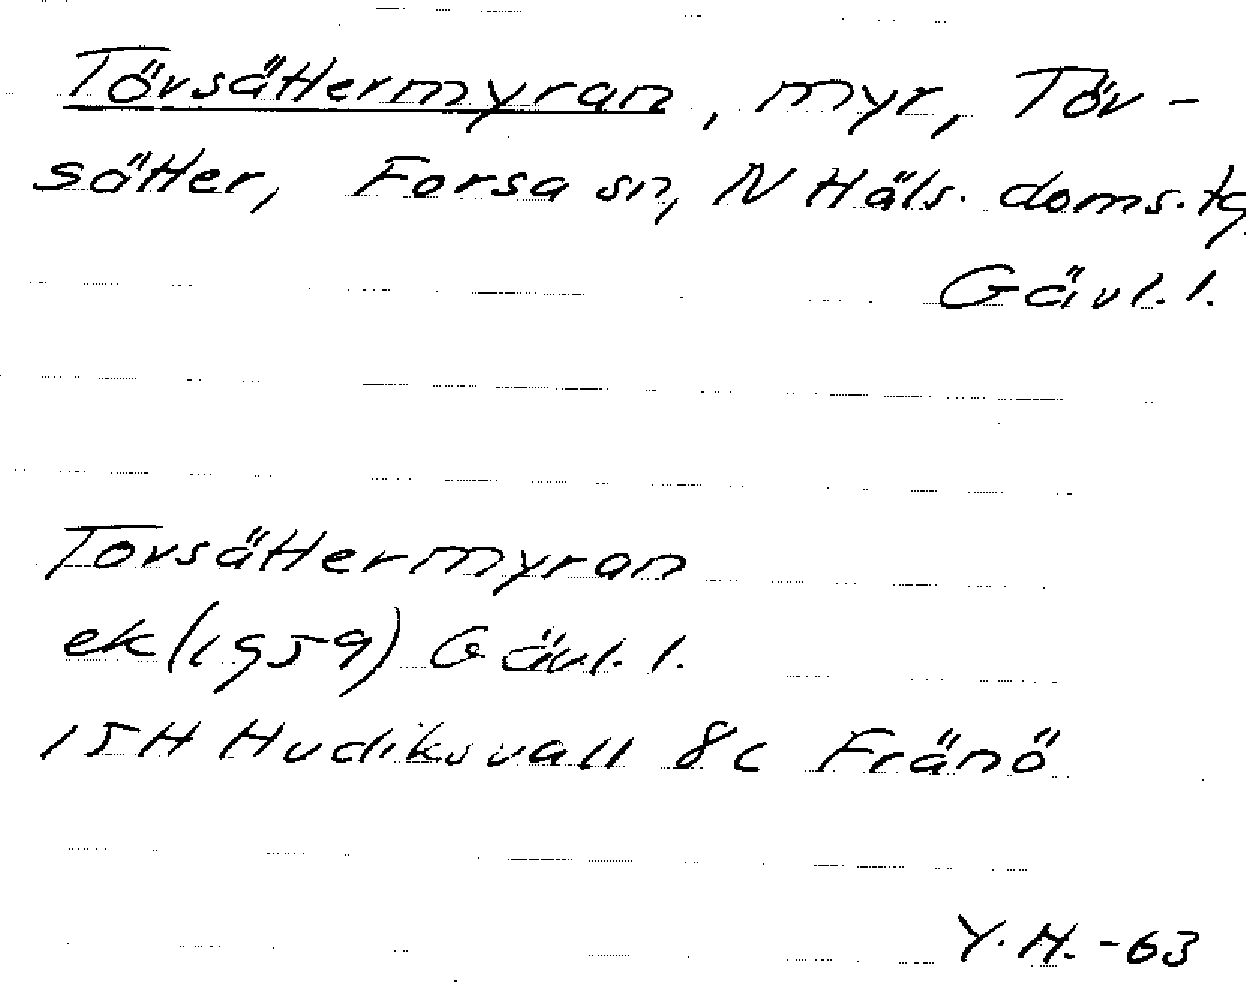 Tövsättermyran, myr, Töv-
sätter, Forsa sn, N Häls. doms.tg
Gävl.l.
Tovsättermyran
ek (1959) Gävl.l.
15H Hudiksvall 8c Fränö
Y.H.-63